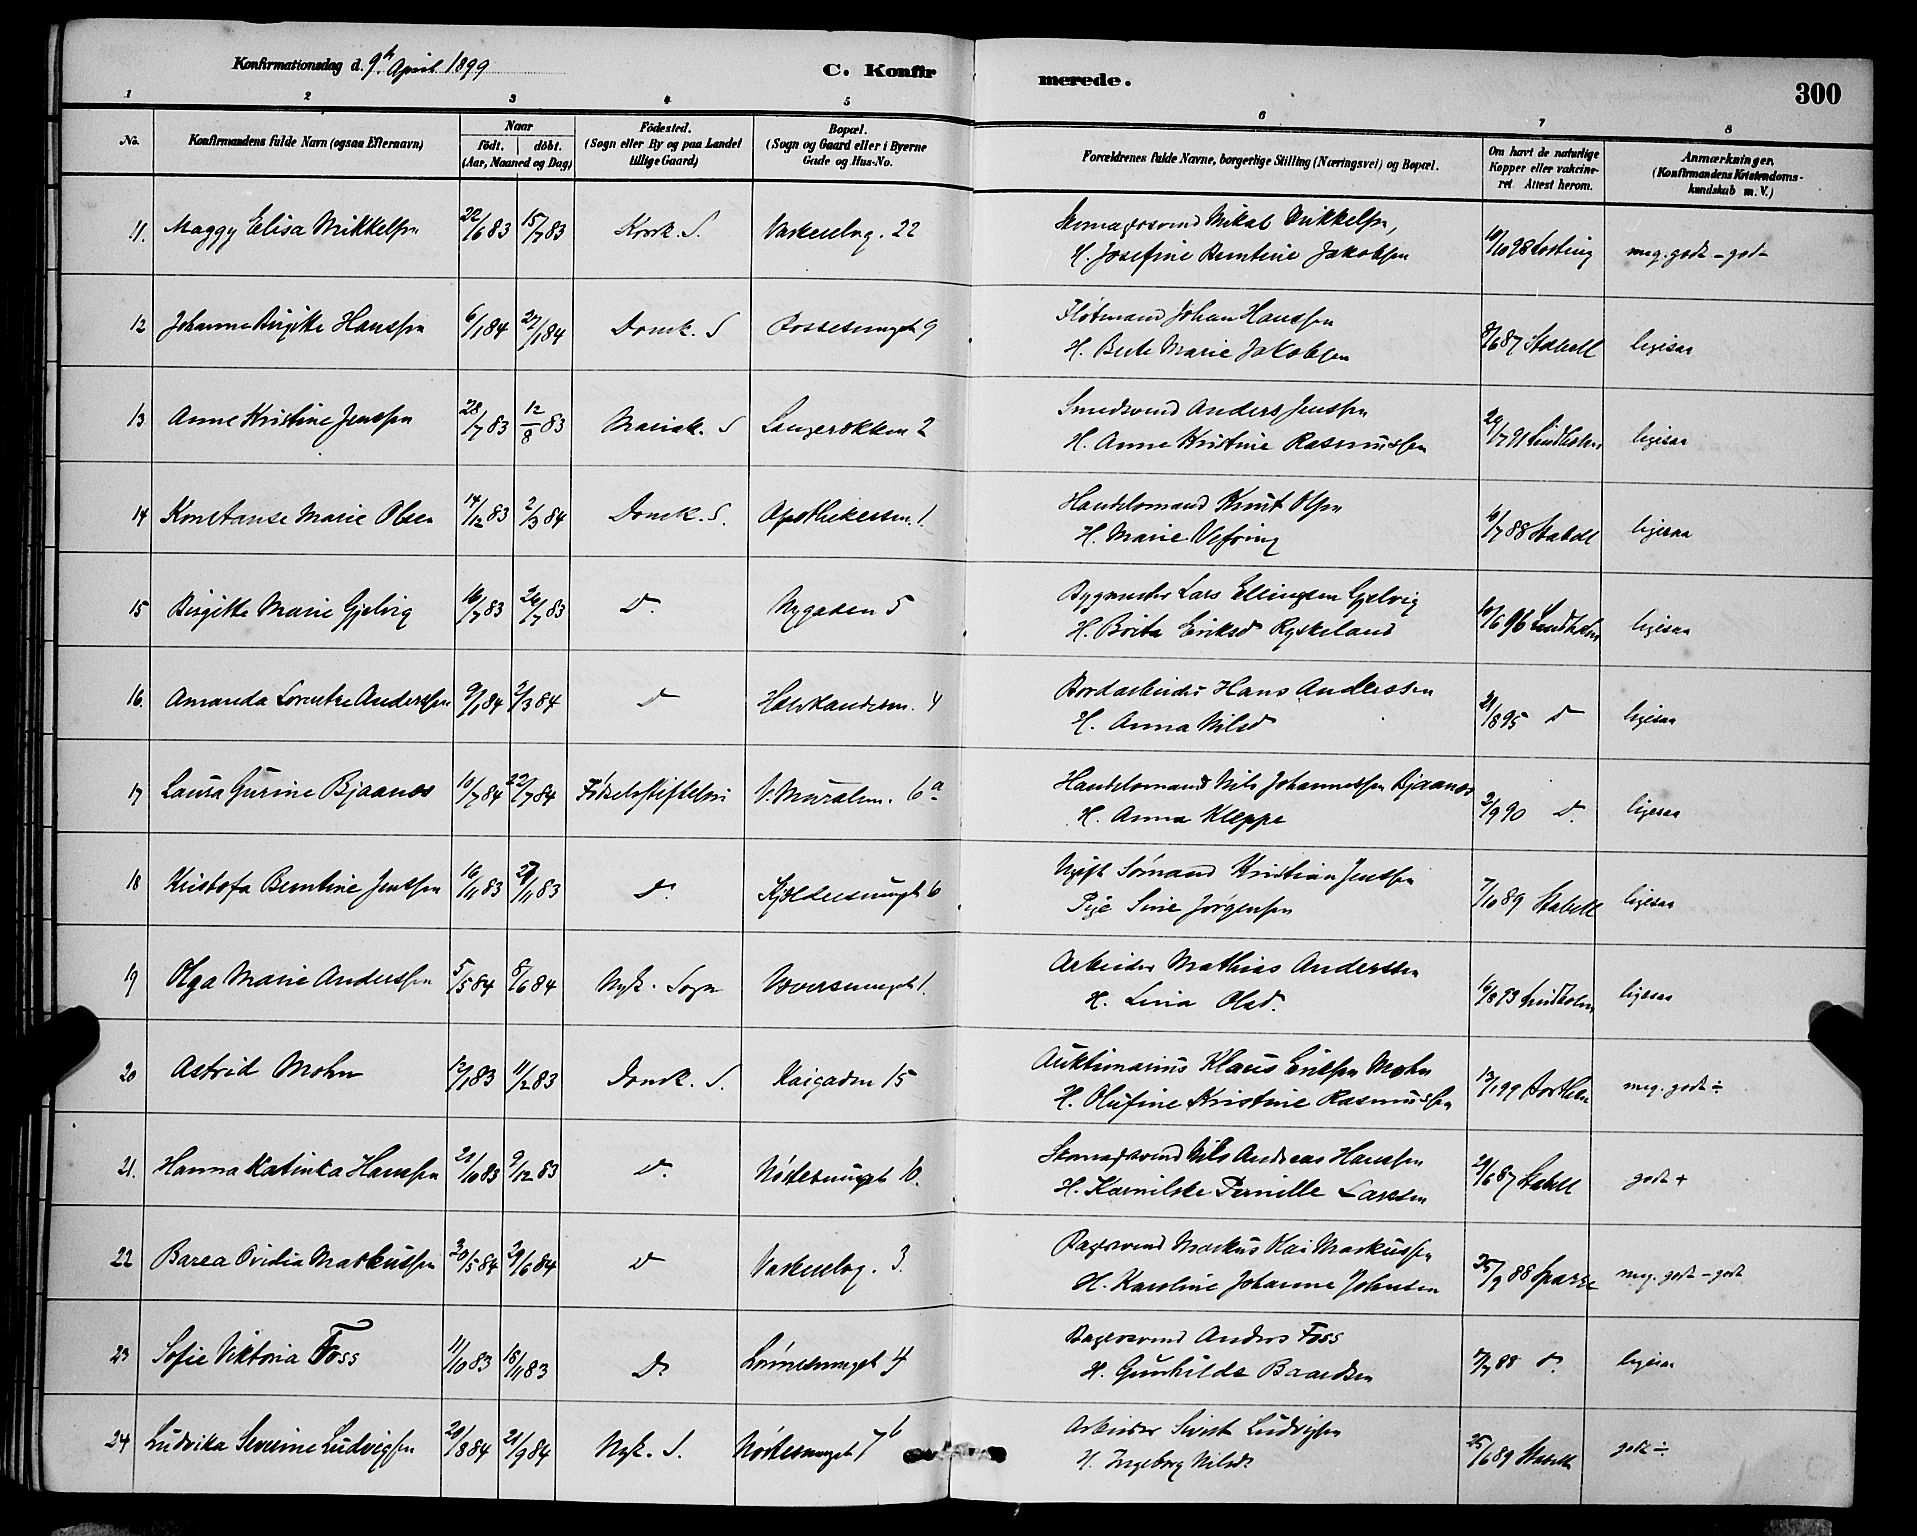 Konfirmationsdag d. 9de April 1899
C. Konfirmerede.
300
1 2 3 4 5 6 7 8
No. Konfirmandens fulde Navn (ogsaa Efternavn) Naar født. døbt. (Aar, Maaned og Dag) Fødested. (Sogn eller By og paa Landet tillige Gaard) Bopæl. (Sogn og Gaard eller i Byerne Gade og Hus-No. Forældrenes fulde Navne, borgerlige Stilling (Næringsvei) og Bopæl. Om havt de naturlige Kopper eller vakcineret. Attest herom. Anmærkninger. (Konfirmandens Kristendomskundskab m. V.)
11. Maggy Elisa Mikkelsen 22/6 83 15/7 83 Korsk. S. Vaskerelvg. 22 Skomagersvend Mikal Mikkelsen,
H. Josefine Berntine Jakobsen 10/10 98 meg. godt - godt
12 Johanne Birgitte Hanssen 6/1 84 27/1 84 Domk. S Rossesmuget 9 Fløtmand Johan Hanssen
H. Berte Marie Jakobsen 8/6 87 Stabell ligesaa
13 Anne Kristine Jenssen 28/7 83 12/8 83 Mariak. S 2 Smedsvend Anders Jenssen
H. Anne Kristine Rasmussen 29/7 91 Lindholm ligesaa
14 Konstanse Marie Olsen 14/12 83 2/3 84 Domk. S. Apothekersm. 1. Handelsmand Knut Olsen
H. Marie Vefring 6/7 88 Stabell ligesaa
15 Birgitte Marie Gjelvig 16/7 83 26/7 83 D. Nygaden 5 Bygmester Lars Ellingsen Gjelvig
H. Brita Eriksd Ryskeland 10/6 96 Lindholm ligesaa
16. Amanda Lorentze Anderssen 9/1 84 2/3 84 D 4 Bordarbeider Hans Anderssen
H. Anna Nilsd 21/8 95 D ligesaa
17 Laura Gurine Bjaanæs 10/7 84 22/7 84 Fødselsstiftelsen V. Muralm. 6a Handelsmand Nils Johannessen Bjaanæs
H. Anna Kleppe 2/9 90 D. ligesaa
18 Kristofa Berntine Jenssen 16/11 83 27/11 83 D. Kjeldersmuget 6 Ugift Sømand Kristian Jenssen
Pige Sine Jørgensen 7/10 89 Stabell ligesaa
19 Olga Marie Anderssen 5/5 84 8/6 84 Nyk. Sogn Væversmuget 1. Arbeider Mathias Anderssen
H. Lina Olsd. 16/8 93 Lindholm ligesaa
20 Astrid Mohn 12/1 83 11/2 83 Domk. S. Kaigaden 15 Auktionarius Klaus Erilsen Mohn
H. Olufine Kristine Rasmussen 13/1 99 meg. godt ÷
21. Hanna Katinka Hanssen 21/10 83 9/12 83 D. Nøstesmuget 10. Skomagersvend Nils Andreas Hanssen
H. Karnilske Pernille Larsen 29/6 87 Stabell godt +
22 Barea Ovidia Markussen 20/5 84 29/6 84 D Vaskerelvg. 3. Bagersvend Markus Kai Markussen
H. Karoline Johanne Johnsen 25/9 88 Sparre meg. godt - godt
23 Sofie Viktoria Foss 11/10 83 18/11 83 D. 4 Bagersvend Anders Foss
H. Gunhilde Baardsen 7/7 88 D. ligesaa
24 Ludvika Severine Ludvigsen 20/8 84 21/9 84 Nyk. S. Nøstesmuget 7b Arbeider Sivert Ludvigsen
H. Ingeborg Nilsd. 25/6 89 Stabell godt ÷